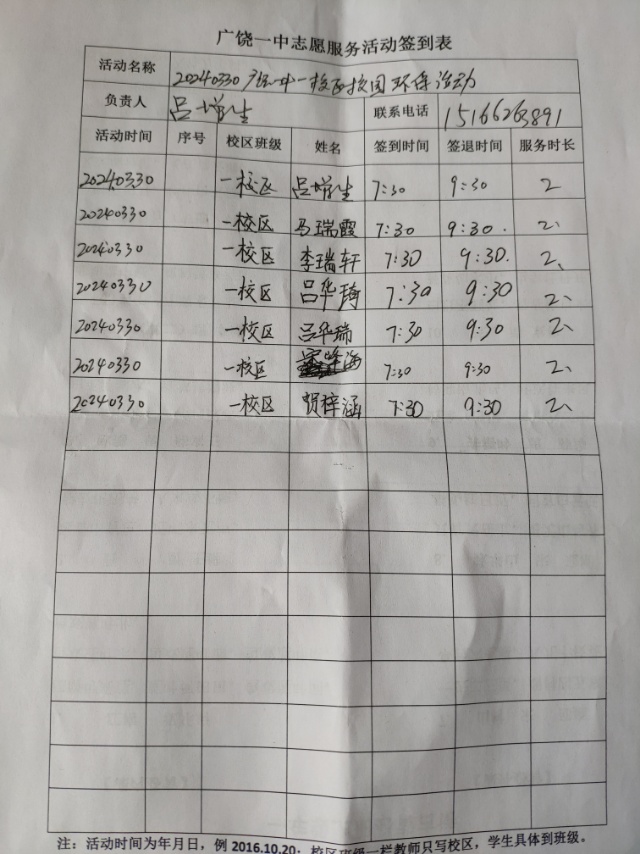 广饶一中志愿服务活动签到表
活动名称 20240330广饶一中一校区校园环保活动
负责人 吕增生 联系电话 15166263891
活动时间 序号 校区班级 姓名 签到时间 签退时间 服务时长
20240330 一校区 吕增生 7:30 9:30 2
20240330 一校区 马瑞霞 7:30 9:30. 2、
20240330 一校区 李瑞轩 7:30 9:30. 2、
20240330 一校区 吕华琦 7:30 9:30 2、
20240330 一校区 吕华瑞 7:30 9:30 2、
20240330 一校区 7:30 9:30 2、
20240330 一校区 贾梓涵 7:30 9:30 2、
注：活动时间为年月日，例 2016.10.20；校区班级一栏教师只写校区，学生具体到班级。